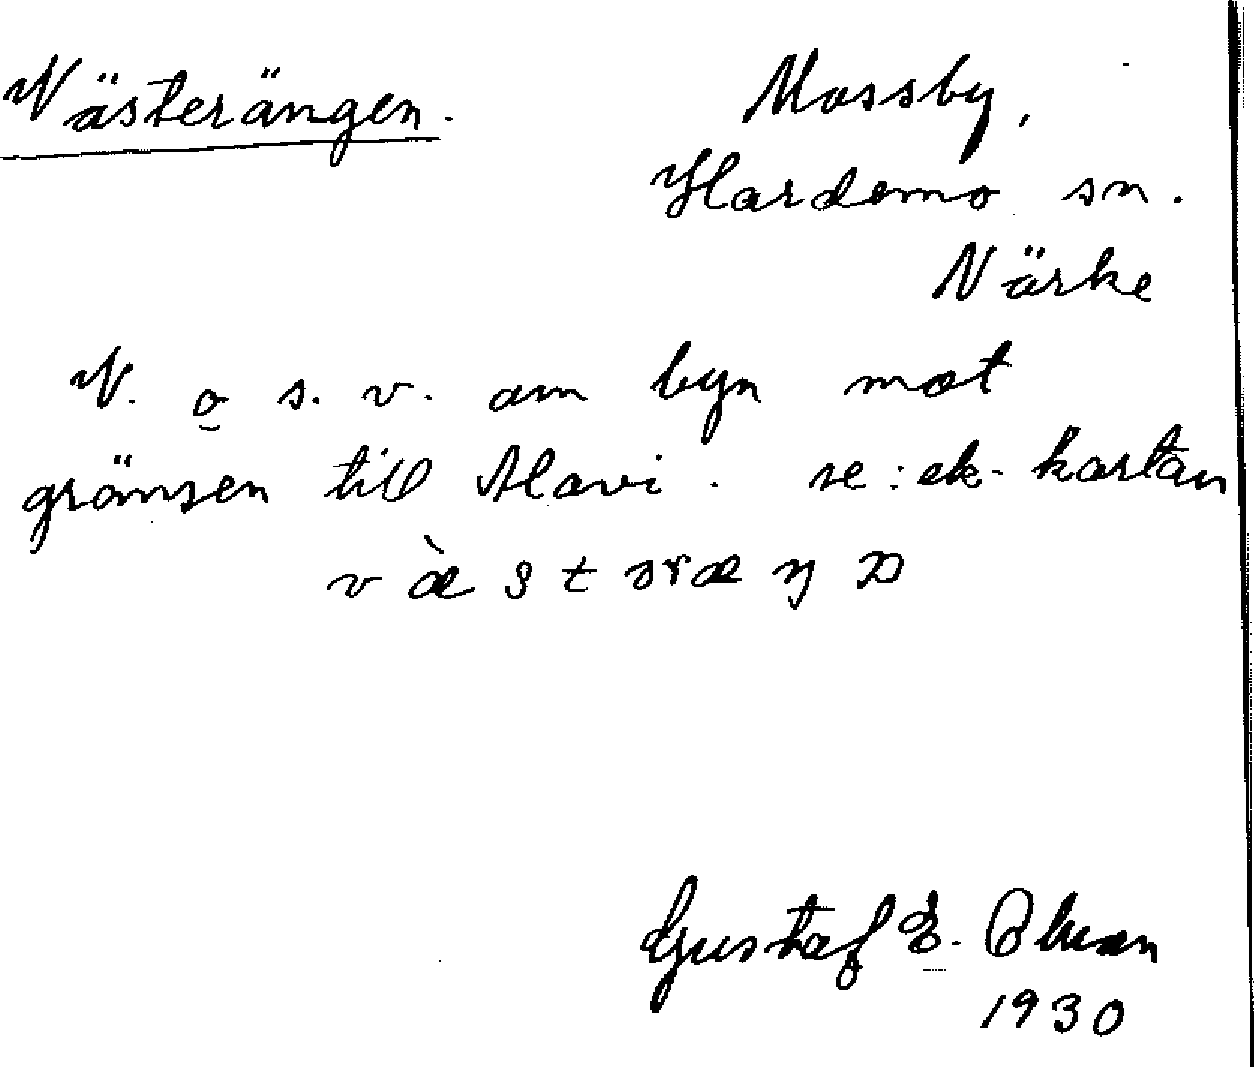 Västerängen.
Mossby,
Hardemo sn.
Närke
V. o s. v. om byn mot
gränsen till Alavi. se: ek. kartan
v æ̀ s t əræ ŋ
Gustaf E.
1930